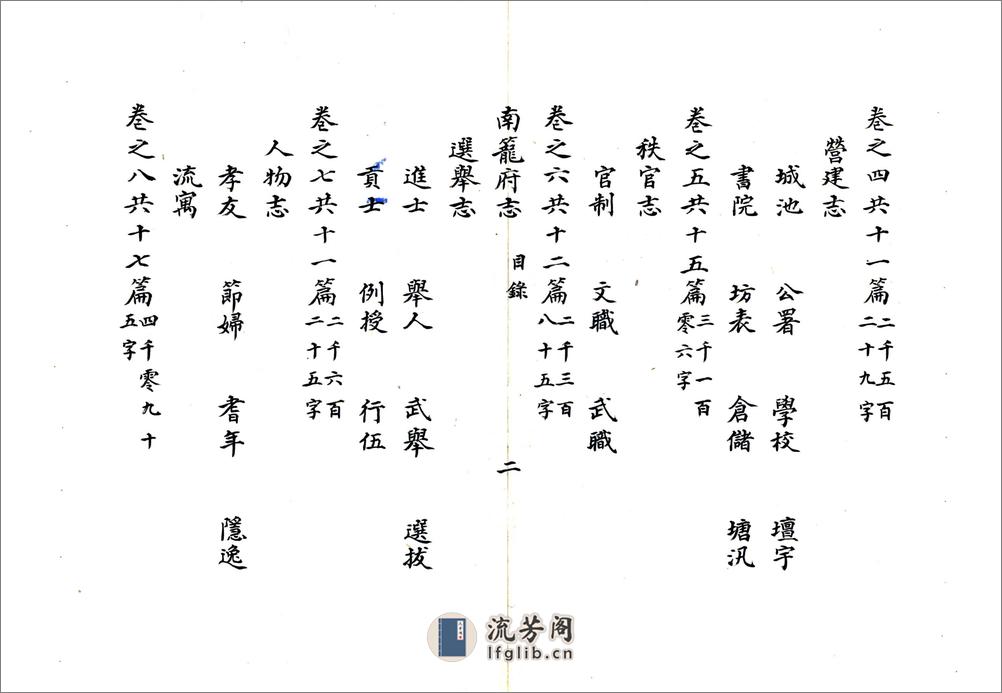 卷之四共十一篇二千五百二十九字
營建志
城池 公署 學校 壇宇
書院 坊表 倉儲 塘汛
卷之五共十五篇三千一百零六字
秩官志
官制 文職 武職
卷之六共十二篇二千三百八十五字
南籠府志 目錄 二
選舉志
進士 舉人 武舉 選拔
貢士 例授 行伍
卷之七共十一篇二千六百二十五字
人物志
孝友 節婦 耆年 隱逸
流寓
卷之八共十七篇四千零九十五字
流芳阁
lfglib.cn